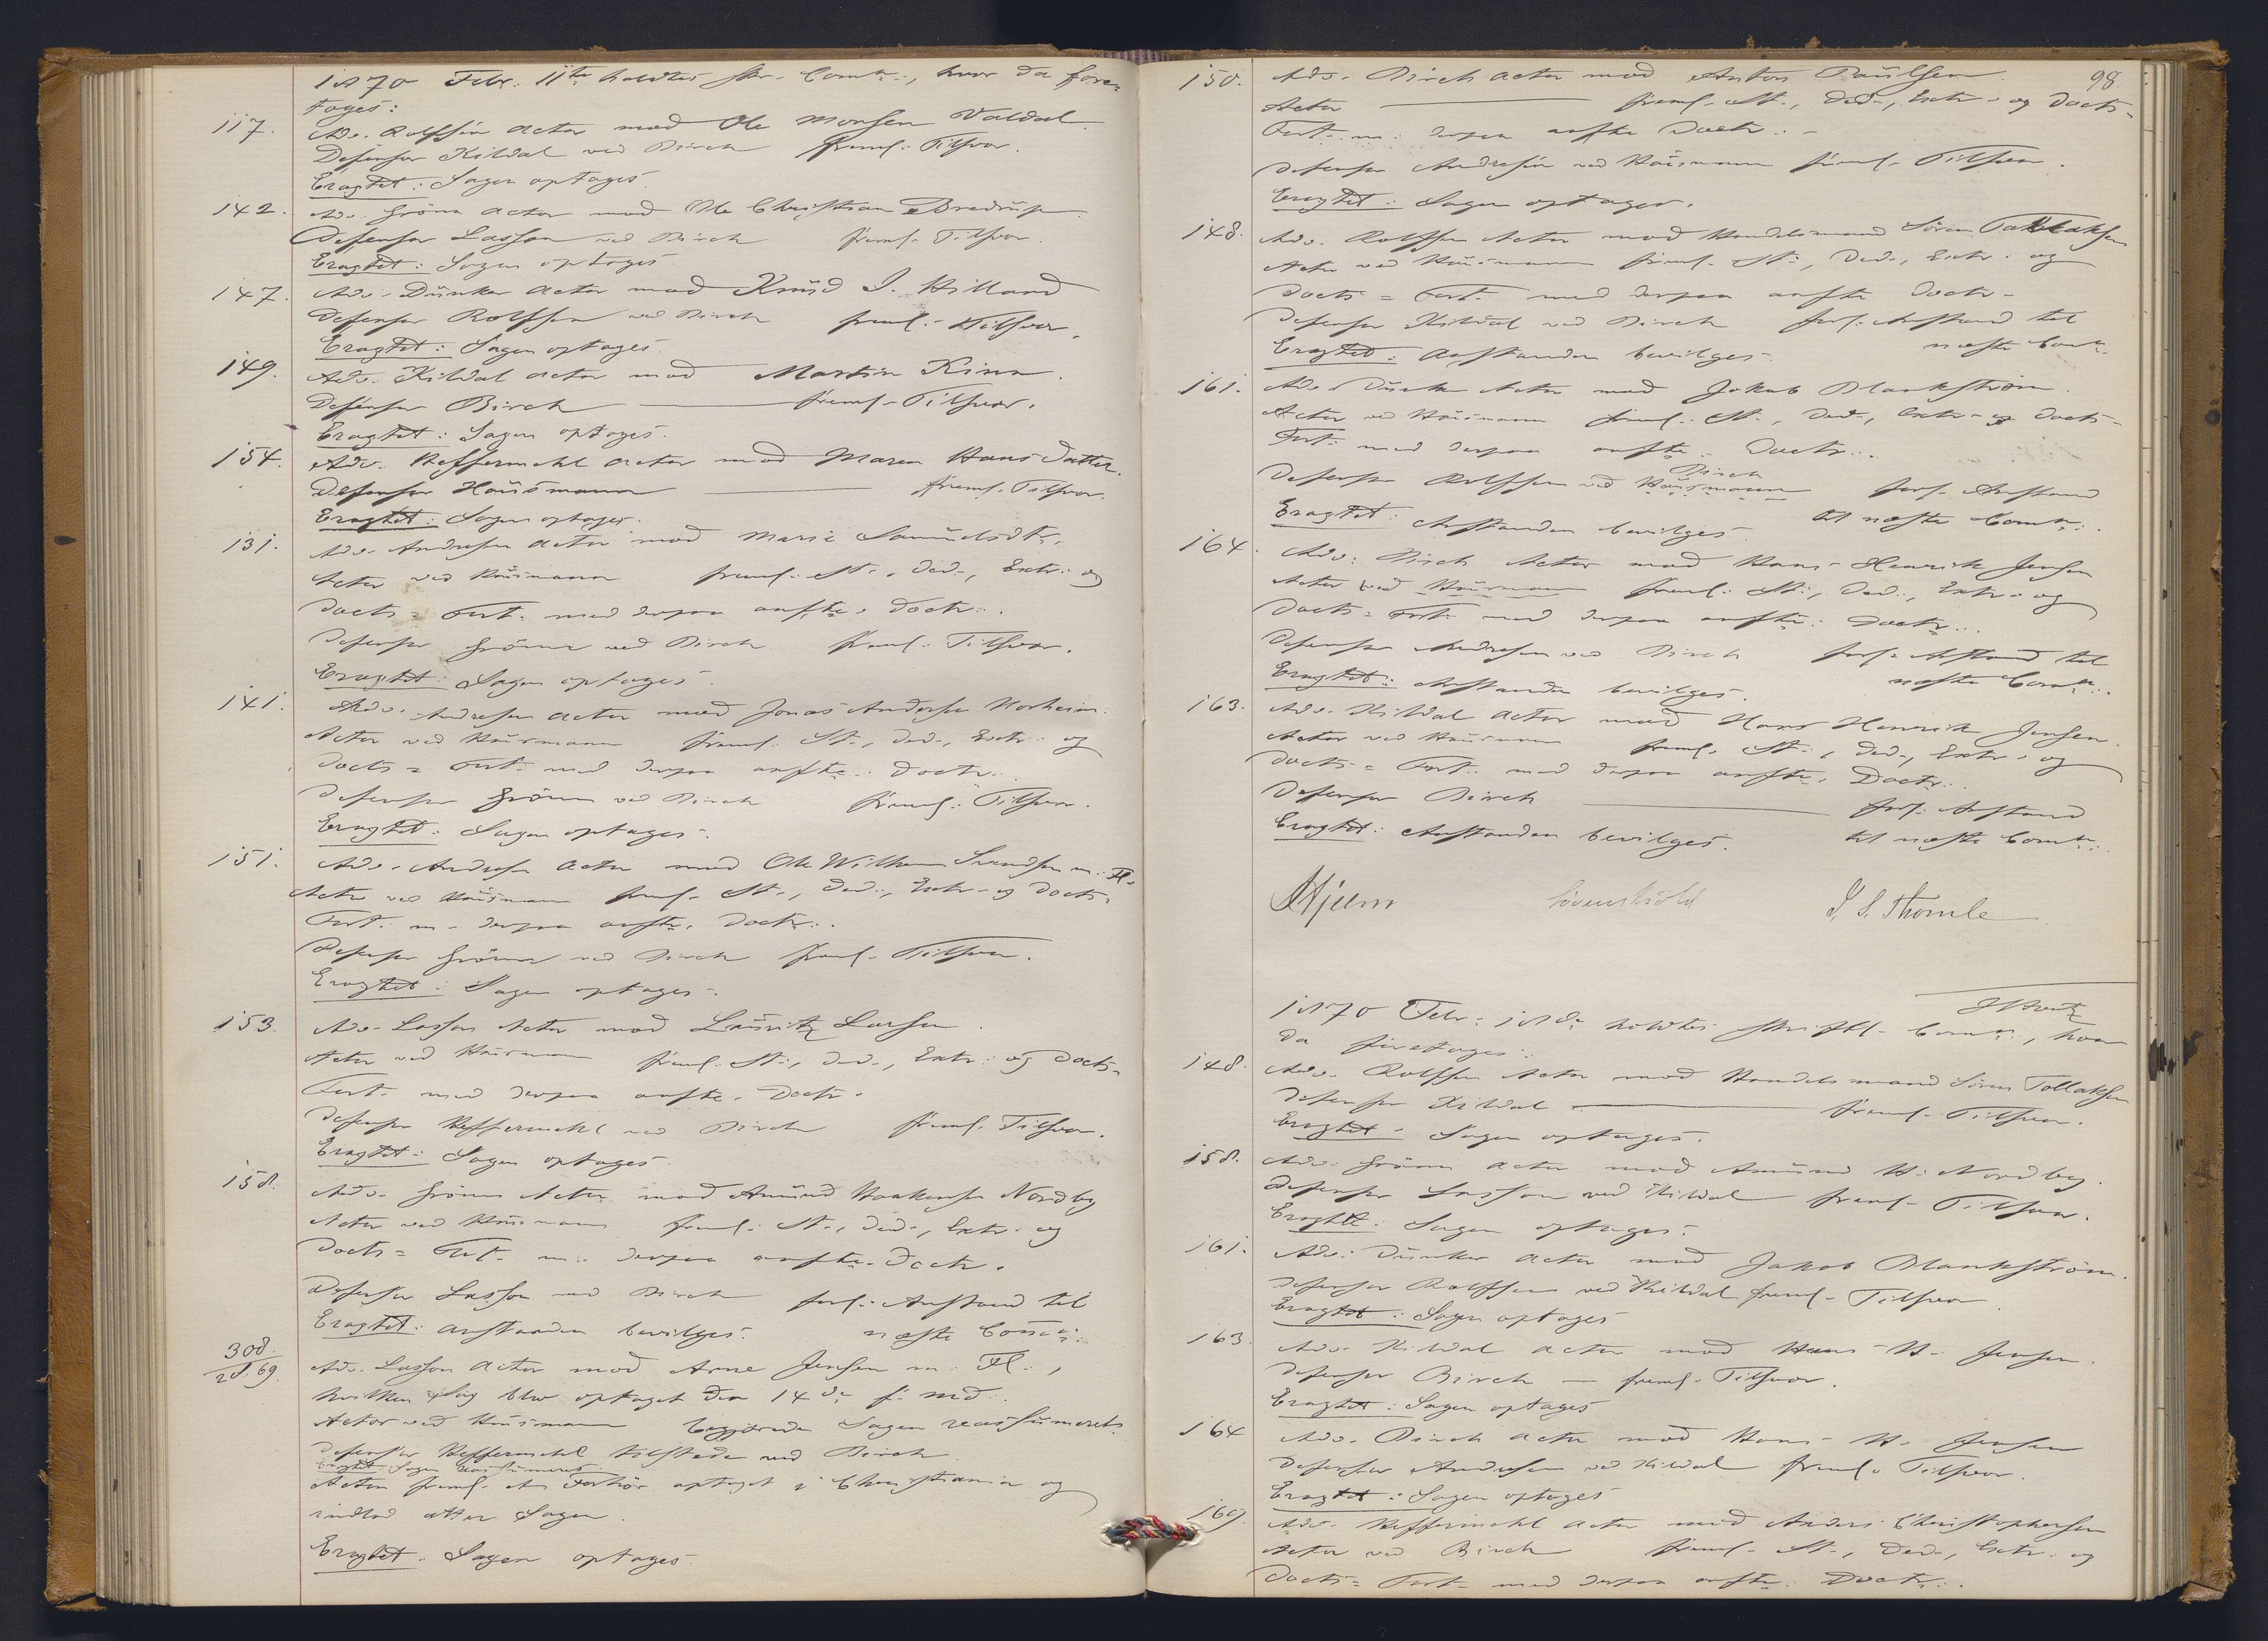 1870 Febr. 11te holdtes skr. Comn:, hvor da fore-
toges:
117. Adv. Rolfsen Actor mod Ole Monsen Valdal.
Defensor Kildal ved Birch freml. Tilsvar.
Eragtet: Sagen optages.
142. Adv. Grönn Actor mod Ole Christian Bredrup.
Defensor Lasson ved Birch freml. Tilsvar.
Eragtet: Sagen optages
147. Adv. Dunker Actor mod Knud I. Hilland
Defensor Rolfsen ved Birch freml. Tilsvar.
Eragtet: Sagen optages.
149. Adv. Kildal Actor mod Martin Kinn.
Defensor Birch freml. Tilsvar.
Eragtet: Sagen optages.
154. Adv. Keffermehl Actor mod Maren Hansdatter.
Defensor Housmann freml. Tilsvar.
Eragtet: Sagen optages.
131. Adv. Andresen Actor mod Marie Samuelsdtr.
Actor ved Housmann freml. St., Ded., Extr. og
Docts = Fort. med derpaa ansfte. Doctr.
Defensor Grönn ved Birch freml. Tilsvar.
Eragtet: Sagen optages.
141. Adv. Andresen Actor mod Jonas Andersen Norheim.
Actor ved Housmann freml. St., Ded., Extr. og
Docts = Fort. med derpaa ansfte. Doctr.
Defensor Grönn ved Birch freml. Tilsvar.
Eragtet: Sagen optages.
151. Adv. Andresen Actor mod Ole Wilhem Svendsen m. Fl.
Actor ved Housmann freml. St., Ded., Extr. og Docts-
Fort. m. derpaa ansfte. Doctr.
Defensor Grönn ved Birch freml. Tilsvar.
Eragtet: Sagen optages.
153. Adv. Lasson Actor mod Lauritz Larsen.
Actor ved Housmann freml. St., Ded., Extr. og Docts-
Fort. med derpaa ansfte. Doctr.
Defensor Keffermehl ved Birch freml. Tilsvar.
Eragtet: Sagen optages
158. Adv. Grönn Actor mod Amund Haakensen Nordby
Actor ved Housmann freml. St., Ded., Extr. og
Docts = Fort. m. derpaa ansfte. Doctr.
Defensor Lasson ved Birch forl. Anstand til
Eragtet: Anstanden bevilges. næste Comn:
308./28. 69. Adv. Lasson Actor mod Arne Jensen m. Fl.,
hvilken Sag blev optaget den 14de f. Md.
Actor ved Housmann begjærede Sagen reassumeret.
Defensor Keffermehl tilstede ved Birch
Eragtet Sagen reassumeres.
Actor freml. et Forhör optaget i Christiania og
indlod atter Sagen.
Eragtet. Sagen optages.
98.
150. Adv. Birch Actor mod Anton Paulsen.
Actor freml. St., Ded., Extr. og Docts-
Fort. m. derpaa ansfte Doctr.
Defensor Andresen ved Housmann freml. Tilsvar.
Eragtet: Sagen optages.
148. Adv. Rolfsen Actor mod Handelsmand Sören Tollaksen
Actor ved Housmann freml. St., Ded., Extr. og
Docts = Fort. med derpaa ansfte Doctr.
Defensor Kildal ved Birch forl. Anstand til
Eragtet: Anstanden bevilges. næste Comn:
161. Adv. Dunker Actor mod Jakob Blankström.
Actor ved Housmann freml. St., Ded., Extr. og Docts-
Fort. med derpaa ansfte. Doctr.
Birch
Defensor Rolfsen ved Housmann forl. Anstand
Eragtet: Anstanden bevilges. til næste Comn:
164. Adv. Birch Actor mod Hans Henrik Jensen
Actor ved Housmann freml. St., Ded., Extr. og
Docts = Fort. med derpaa ansfte. Doctr.
Defensor Andresen ved Birch forl. Anstand til
Eragtet: Anstanden bevilges. næste Comn:
163. Adv. Kildal Actor mod Hans Henrik Jensen.
Actor ved Housmann freml. St., Ded., Extr. og
Docts = Fort. med derpaa ansfte. Doctr.
Defensor Birch forl. Anstand
Eragtet: Anstanden bevilges. til næste Comn:
Hjelm Lövenskiold I. S. Thomle
1870 Febr. 18de holdtes skriftl. Comn:, hvor
da foretoges:
148. Adv. Rolfsen Actor mod Handelsmand Sören Tollaksen
Defensor Kildal freml. Tilsvar.
Eragtet: Sagen optages.
158. Adv. Grönn Actor mod Amund H. Nordby.
Defensor Lasson ved Kildal freml. Tilsvar.
Eragtet: Sagen optages.
161. Adv. Dunker Actor mod Jakob Blankström.
Defensor Rolfsen ved Kildal freml. Tilsvar.
Eragtet: Sagen optages
163. Adv. Kildal Actor mod Hans H. Jensen.
Defensor Birch freml. Tilsvar.
Eragtet: Sagen optages
164 Adv. Birch Actor mod Hans H. Jensen
Defensor Andresen ved Kildal freml. Tilsvar.
Eragtet: Sagen optages
169. Adv. Keffermehl Actor mod Anders Christophersen
Actor ved Birch freml. St., Ded., Extr. og
Docts = Fort. med derpaa ansfte. Doctr.